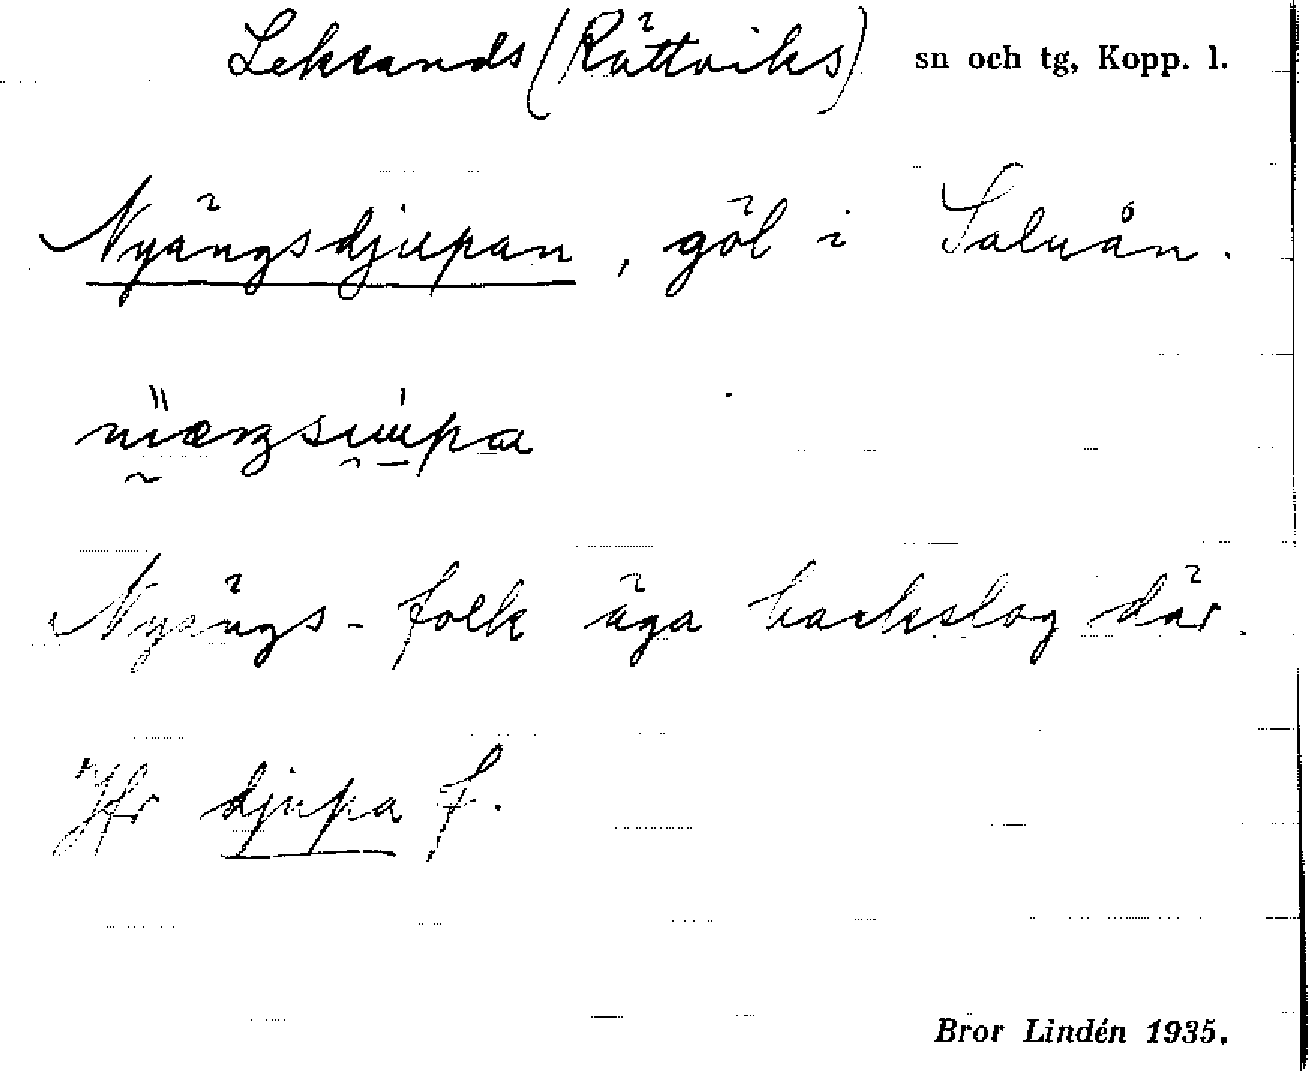 Leksands (Rättviks) sn och tg, Kopp. l.
Nyängsdjupan, göl i Saluån.
Nyängs-folk äga backslog där.
Jfr djupa f.
Bror Lindén 1935.